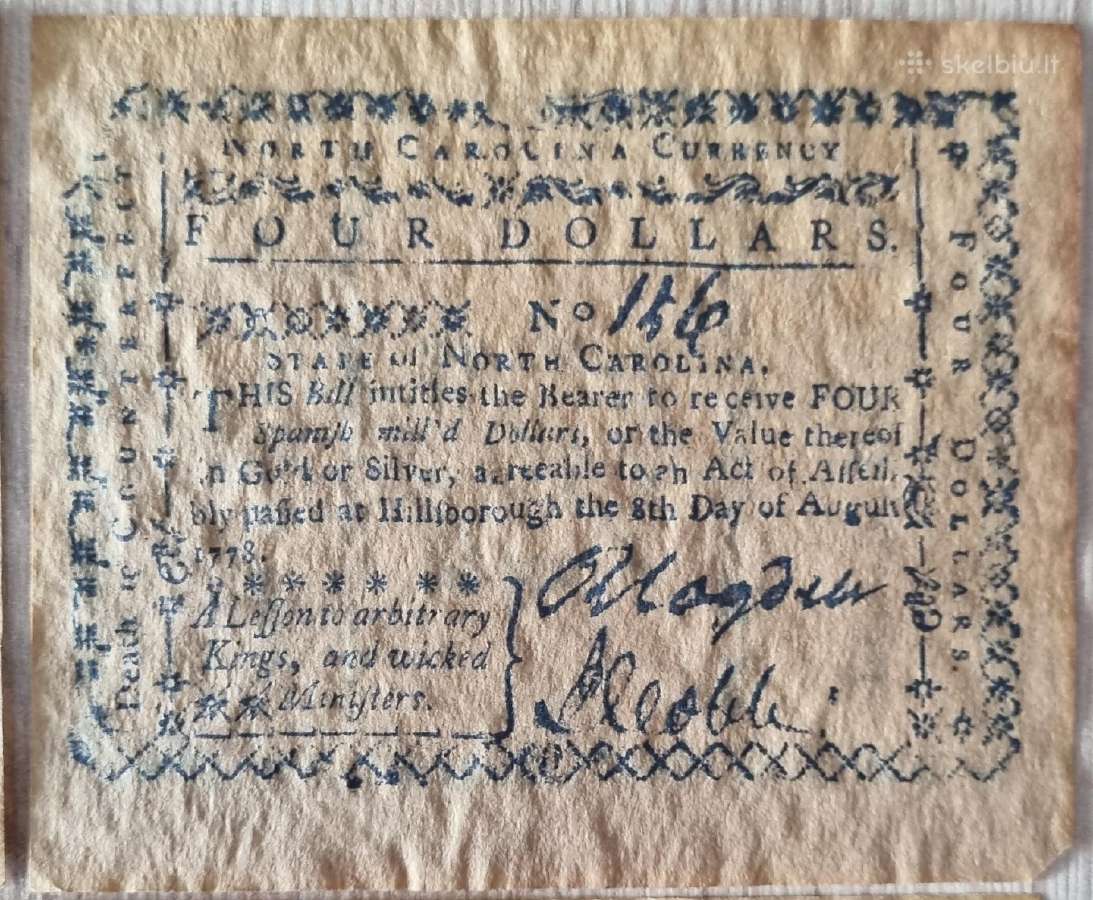 skelbiu.lt
NORTH CAROLINA CURRENCY
FOUR DOLLARS.
No 156
STATE of NORTH CAROLINA.
THIS Bill intitles the Bearer to receive FOUR
Spanish mill'd Dollars, or the Value thereof
in Gold or Silver, agreeable to an Act of Assem-
bly passed at Hillsborough the 8th Day of August
1778.
A Lesson to arbitrary
Kings, and wicked
Ministers.
Death to COUNTERFEIT
FOUR DOLLARS.